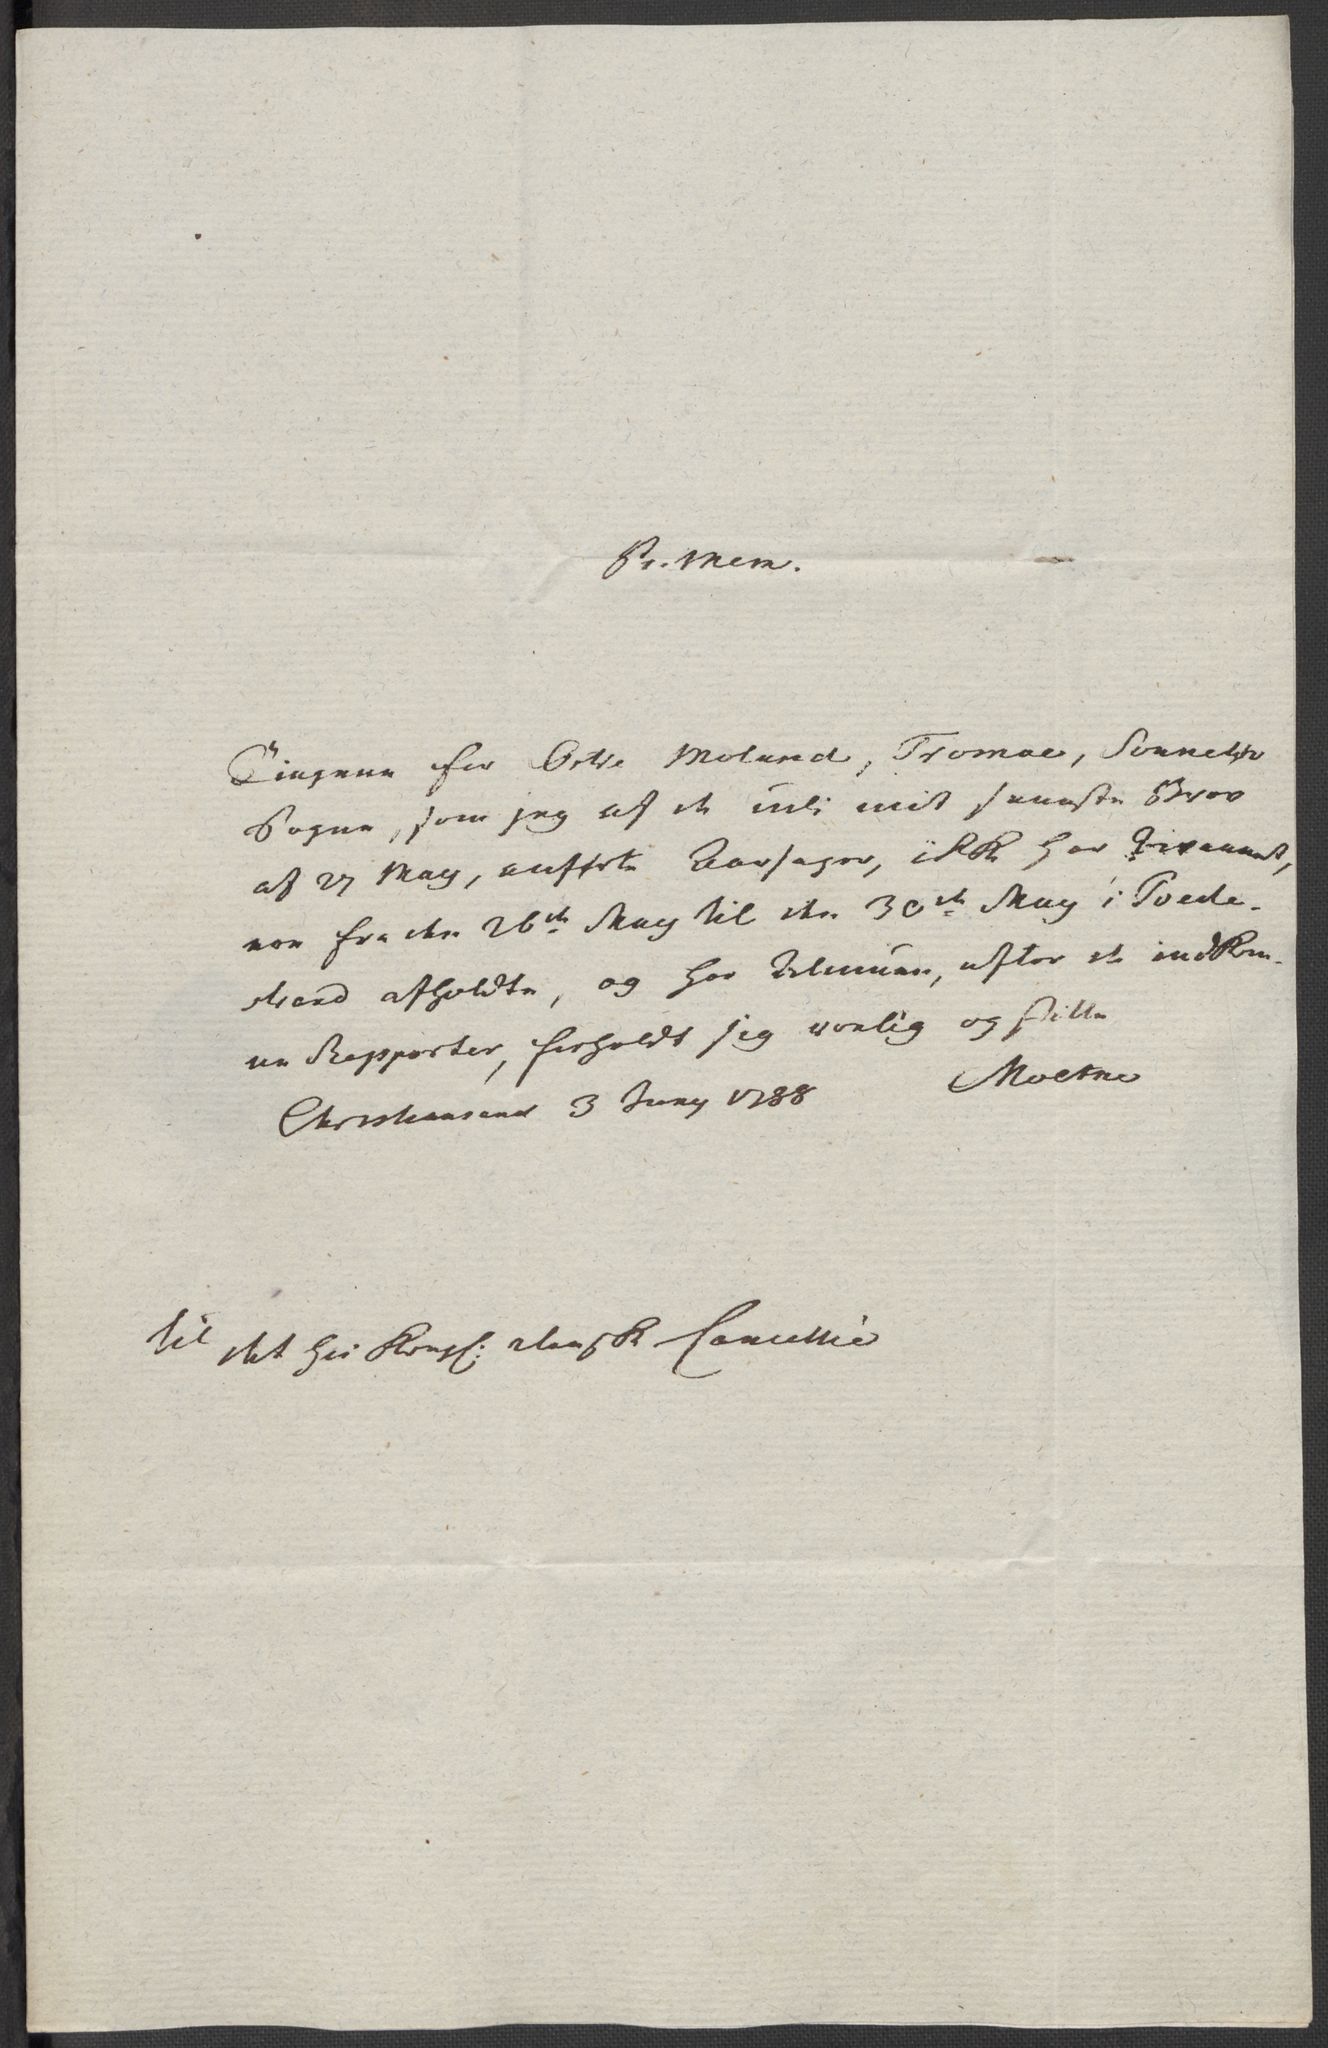 Pr. Mem.
Tingene for Østre Moland, Tromøe, Sonnelofs
Sogne, som jeg af de udi mit seneste Brev
af 27 May, anførte Aarsager, ikke har bivaanet,
ere fra den 26de May til den 30de May i Tvede-
strand afholdte, og har Almuen, efter de indkom-
ne Rapporter, forholdt sig roelig og stille
Christiansand 3 Juny 1788 Moltke
til det høi Kongl: danske Cancellie